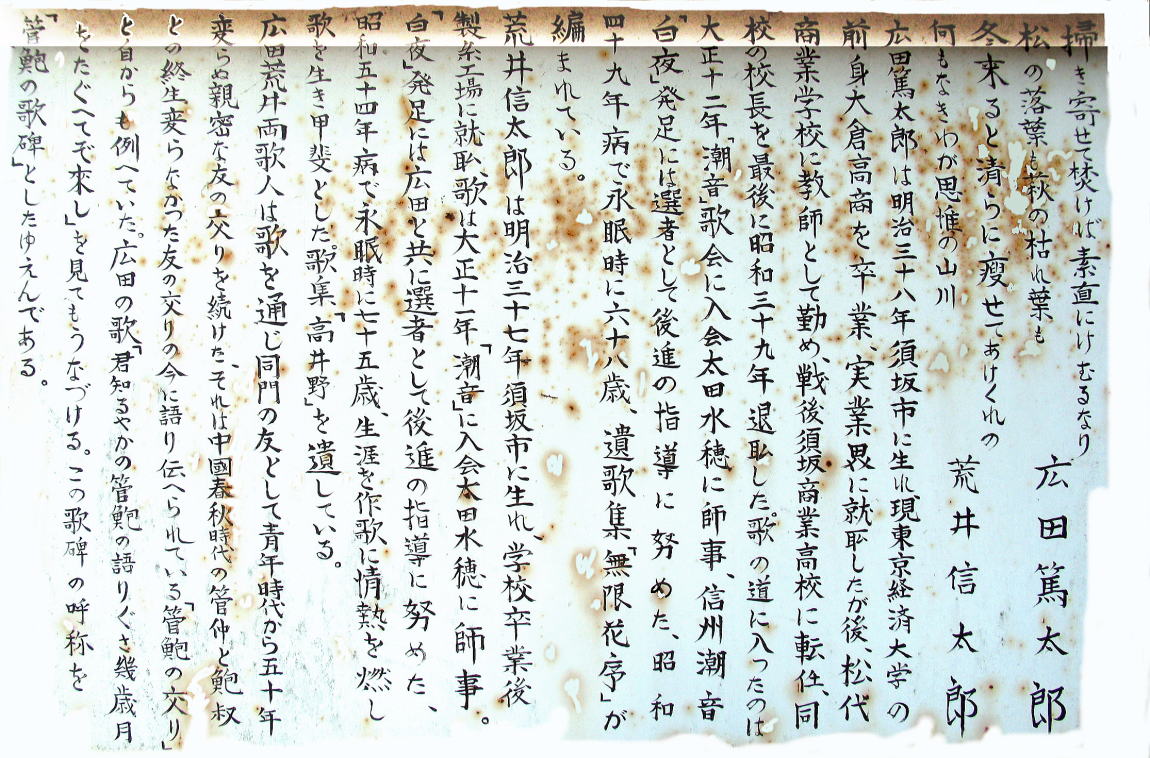 掃き寄せて焚けば素直にけむるなり
松の落葉も萩の枯れ葉も
広田篤太郎
冬来ると清らに瘦せてあけくれの
何もなきわが思惟の山川
荒井信太郎
広田篤太郎は明治三十八年須坂市に生れ、現東京経済大学の
前身大倉高商を卒業、実業界に就恥したが後、松代
商業学校に教師として勤め、戦後須坂商業高校に転任、同
校の校長を最後に昭和三十九年退恥した。歌の道に入ったのは
大正十二年「潮音」歌会に入会太田水穂に師事、信州潮音
「白夜」発足には選者として後進の指導に努めた、昭和
四十九年病で永眠時に六十八歳、遺歌集「無限花序」が
編まれている。
荒井信太郎は明治三十七年須坂市に生れ、学校卒業後
製糸工場に就恥、歌は大正十一年「潮音」に入会太田水穂に師事。
「白夜」発足には広田と共に選者として後進の指導に努めた、
昭和五十四年病で永眠時に七十五歳、生涯を作歌に情熱を燃し
歌を生き甲斐とした。歌集「高井野」を遺している。
広田荒井両歌人は歌を通じ同門の友として青年時代から五十年
変らぬ親密な友の交りを続けた、それは中國春秋時代の管仲と鮑叔
との終生変らなかった友の交りの今に語り伝へられている「管鮑の交り」
と自からも例へていた。広田の歌「君知るやかの管鮑の語りぐさ幾歳月
をたぐへてぞ来し」を見てもうなづける。この歌碑の呼称を
「管鮑の歌碑」としたゆえんである。